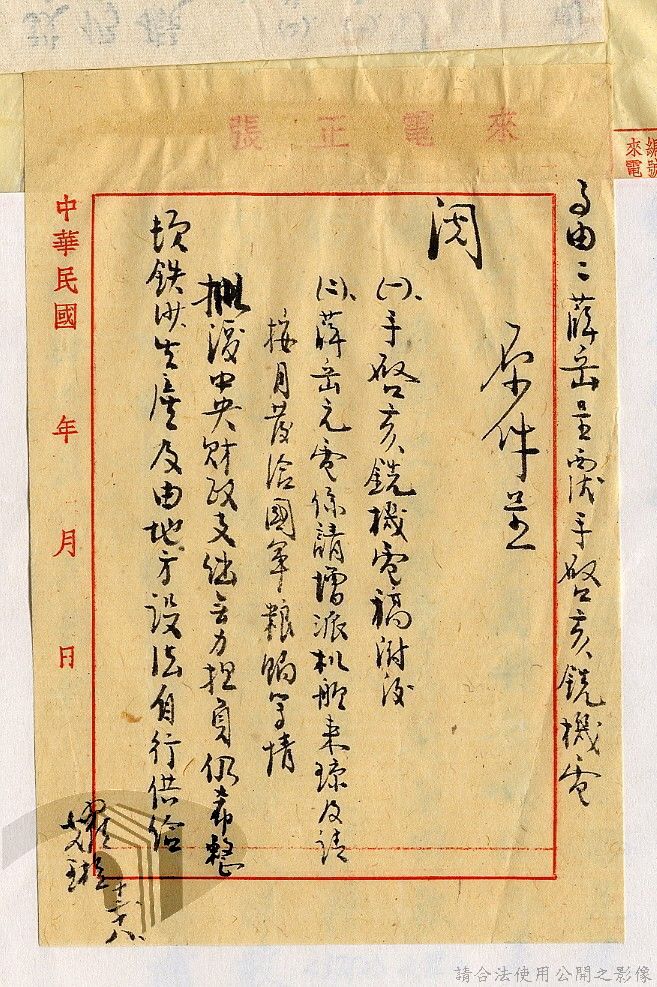 來電正張
編號
來電
事由：薛岳呈覆手啓亥銑機電
閱
原件呈
㈠、手啓亥銑機電稿附後
㈡、薛岳元電係請增派机艦來瓊及請
按月發給國軍粮餉等情
擬復中央財政支絀無力担負仍希整
頓鉄沙生產及由地方設法自行供給
十二、十八
中華民國 年 月 日
請合法使用公開之影像